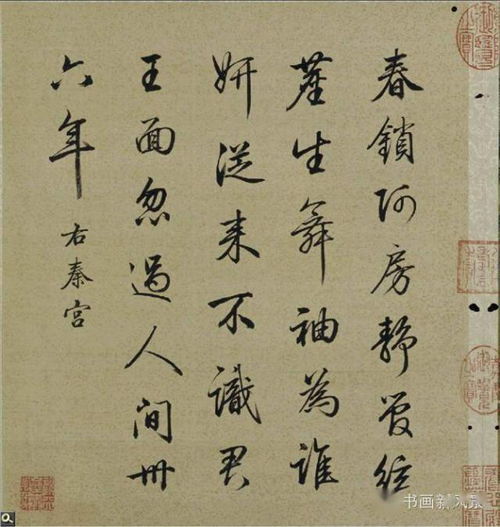 春鎖阿房靜管絃
塵生舞袖為誰
妍從来不識君
王面忽過人间卅
六年
右秦宫
书画新风景